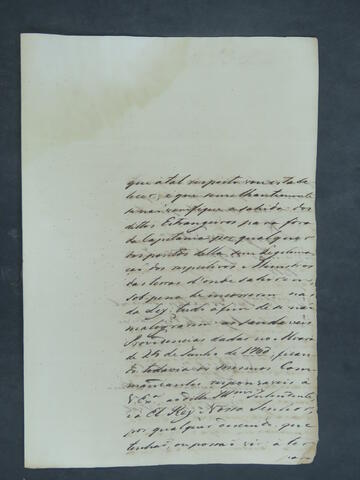 que a tal respeito vem estabe
lecer, e que semelhantemente
se não verifique a sahida dos
dittos Estrangeiros para fora
da Capitania por qualquer
dos pontos della sem
dos respectivos Ministros
das terras d'onde sahirem
sob pena de incorrerem nas
da Ley, tudo a fim de se não
malograrem as saudaveis
Providencias dadas no Alvará
de 25 de Junho de 1760, fican
do todavia os mesmos Com
mandantes responsaveis á
V. Exa. a ditto Intendente
e a El Rey Nosso Senhor
por qualquer que
tenhão, ou possão vir a ter
para